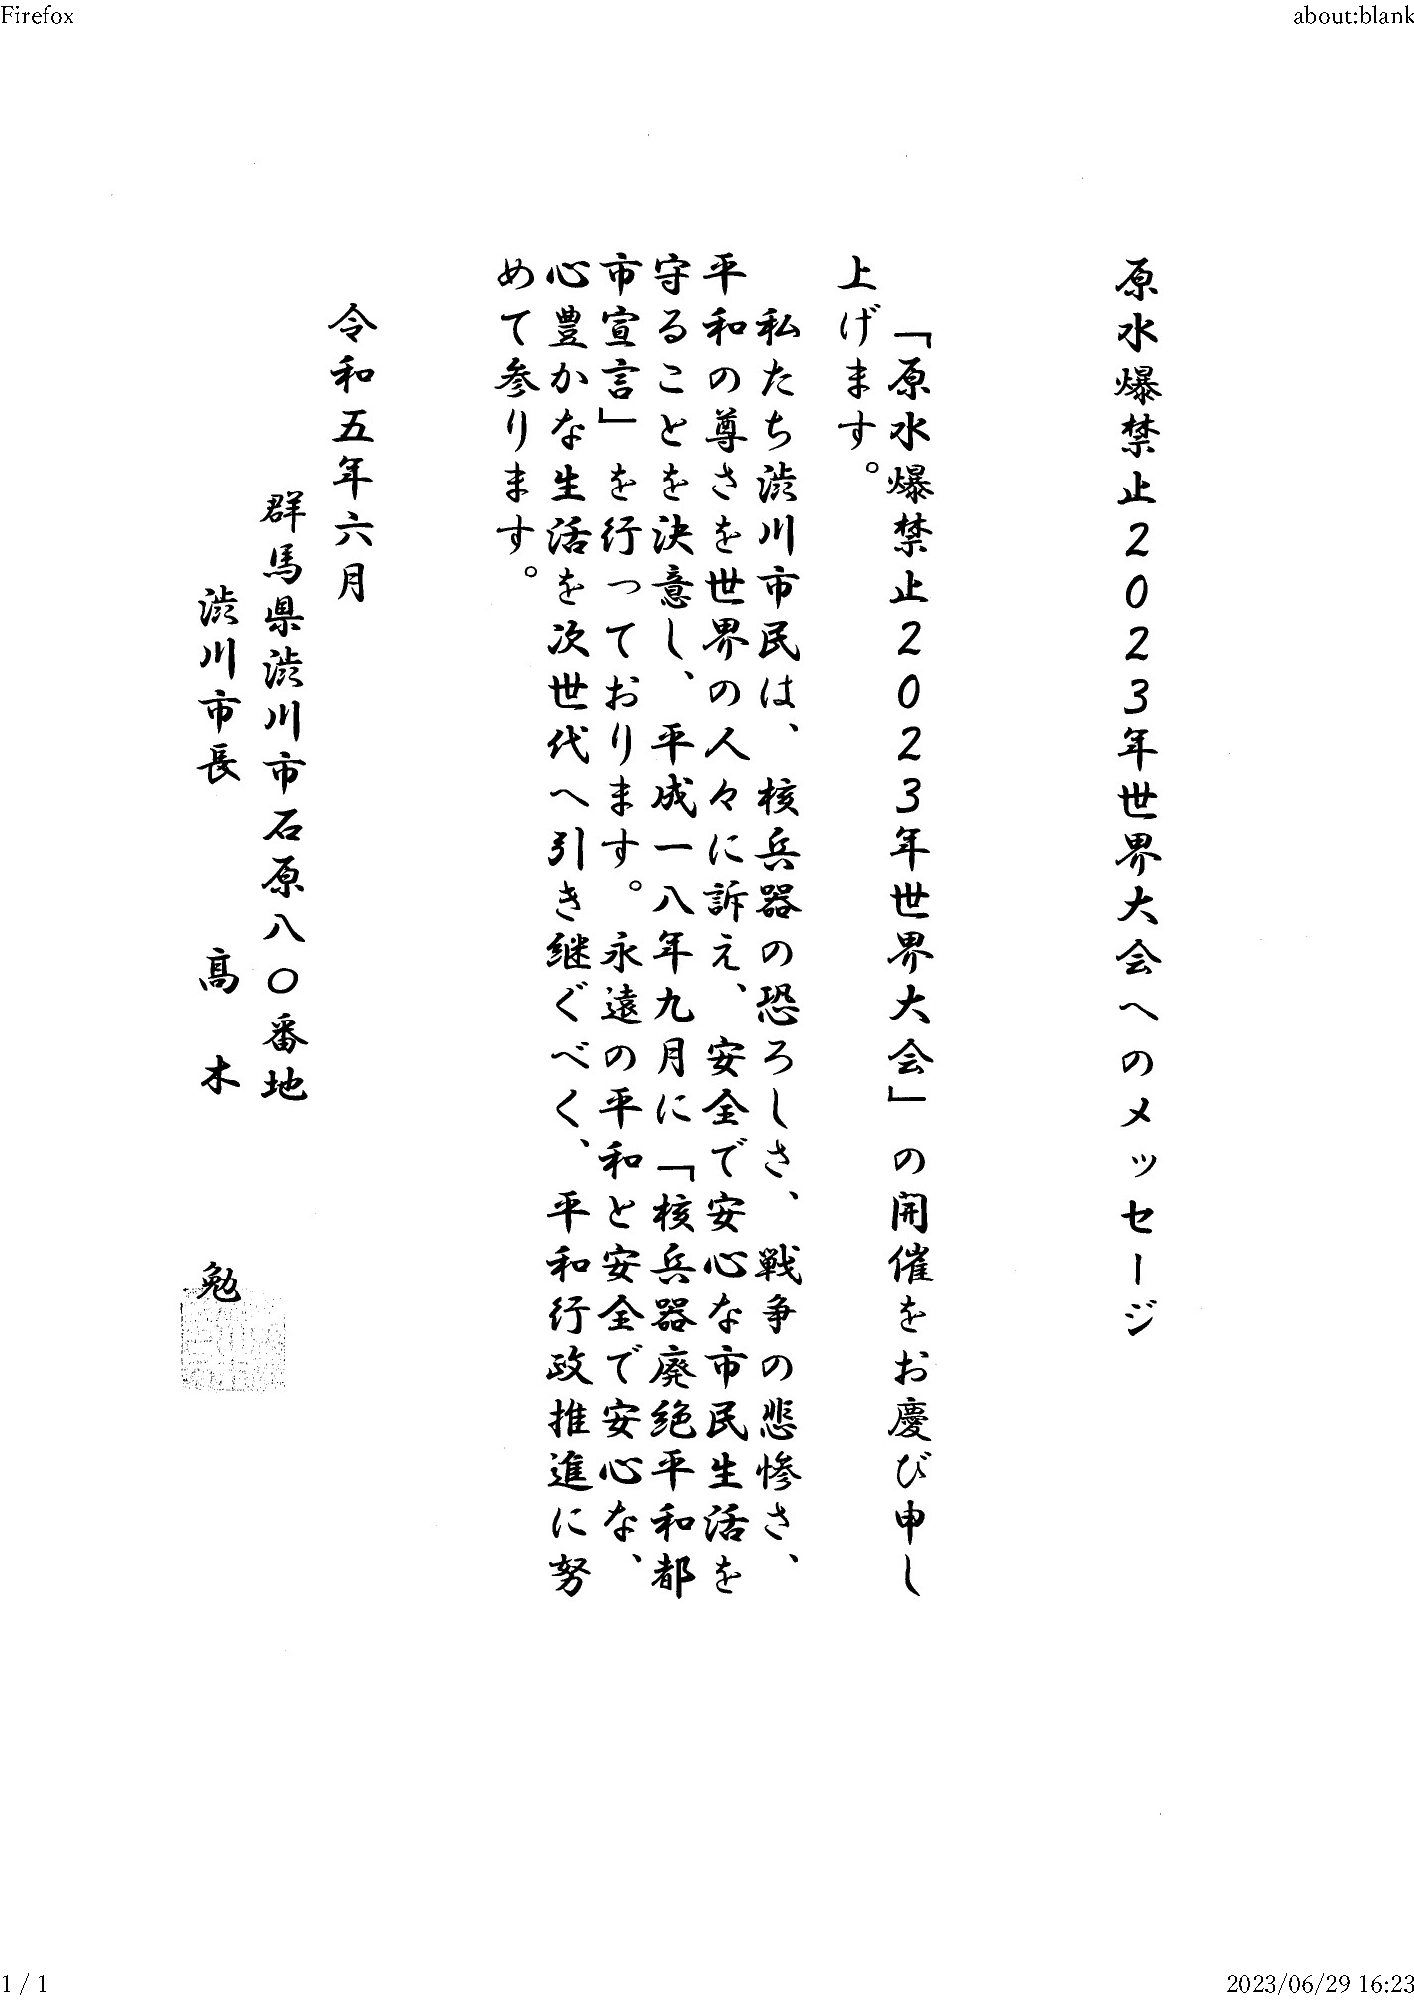 Firefox
about:blank
原水爆禁止2023年世界大会へのメッセージ
「原水爆禁止2023年世界大会」の開催をお慶び申し
上げます。
私たち渋川市民は、核兵器の恐ろしさ、戦争の悲惨さ、
平和の尊さを世界の人々に訴え、安全で安心な市民生活を
守ることを決意し、平成一八年九月に「核兵器廃絶平和都
市宣言」を行っております。永遠の平和と安全で安心な、
心豊かな生活を次世代へ引き継ぐべく、平和行政推進に努
めて参ります。
令和五年六月
群馬県渋川市石原八〇番地
渋川市長 髙木 勉
1 / 1
2023/06/29 16:23